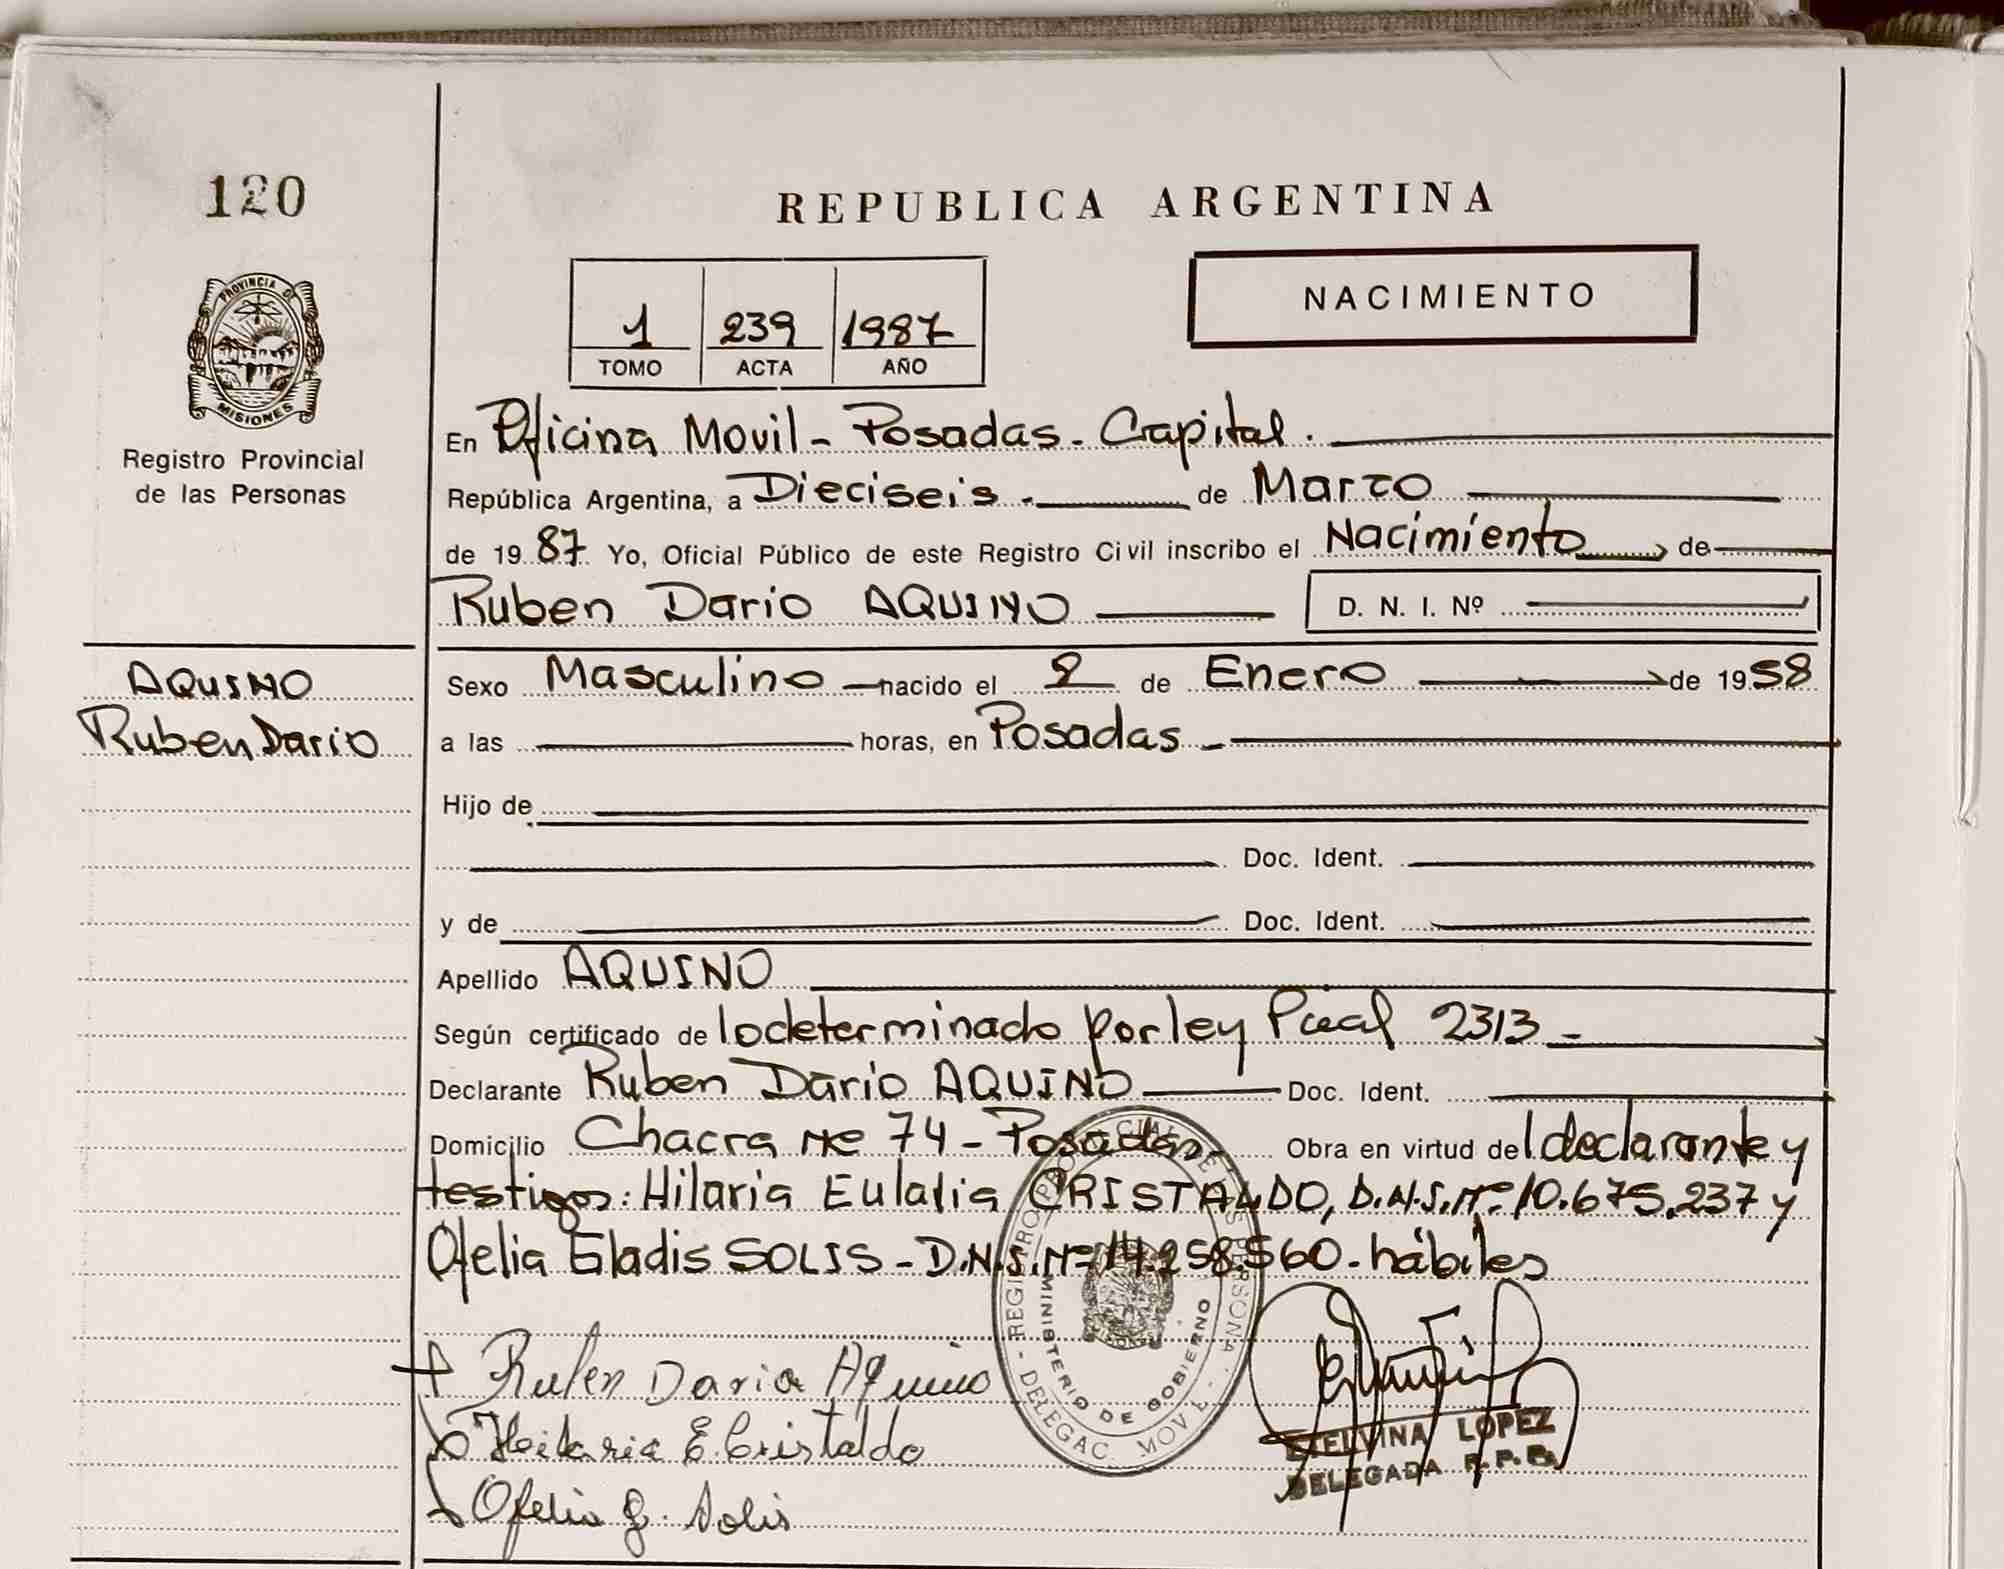 120
REPUBLICA ARGENTINA
PROVINCIA DE
MISIONES
Registro Provincial
de las Personas
1 239 1987
TOMO ACTA AÑO
NACIMIENTO
En Oficina Movil - Posadas - Capital.
República Argentina, a Dieciseis - de Marzo
de 1987 Yo, Oficial Público de este Registro Civil inscribo el Nacimiento de
Ruben Dario AQUINO D. N. I. Nº
AQUINO
Ruben Dario
Sexo Masculino nacido el 2 de Enero de 1958
a las horas, en Posadas -
Hijo de
Doc. Ident.
y de Doc. Ident.
Apellido AQUINO
Según certificado de lo determinado por ley Pcial 2313 -
Declarante Ruben Dario AQUINO Doc. Ident.
Domicilio Chacra Nº 74 - Posadas Obra en virtud del declarante y
testigos: Hilaria Eulalia CRISTALDO, D.N.I. Nº 10.675.237 y
Ofelia Gladis SOLIS - D.N.I. Nº 14.258.560 - hábiles
REGISTRO PROVINCIAL DE LAS PERSONAS - DELEGAC. MOVIL -
MINISTERIO DE GOBIERNO
Ruben Dario Aquino
Hilaria E. Cristaldo
Ofelia G. Solis
ETELVINA LOPEZ
DELEGADA R.P.P.